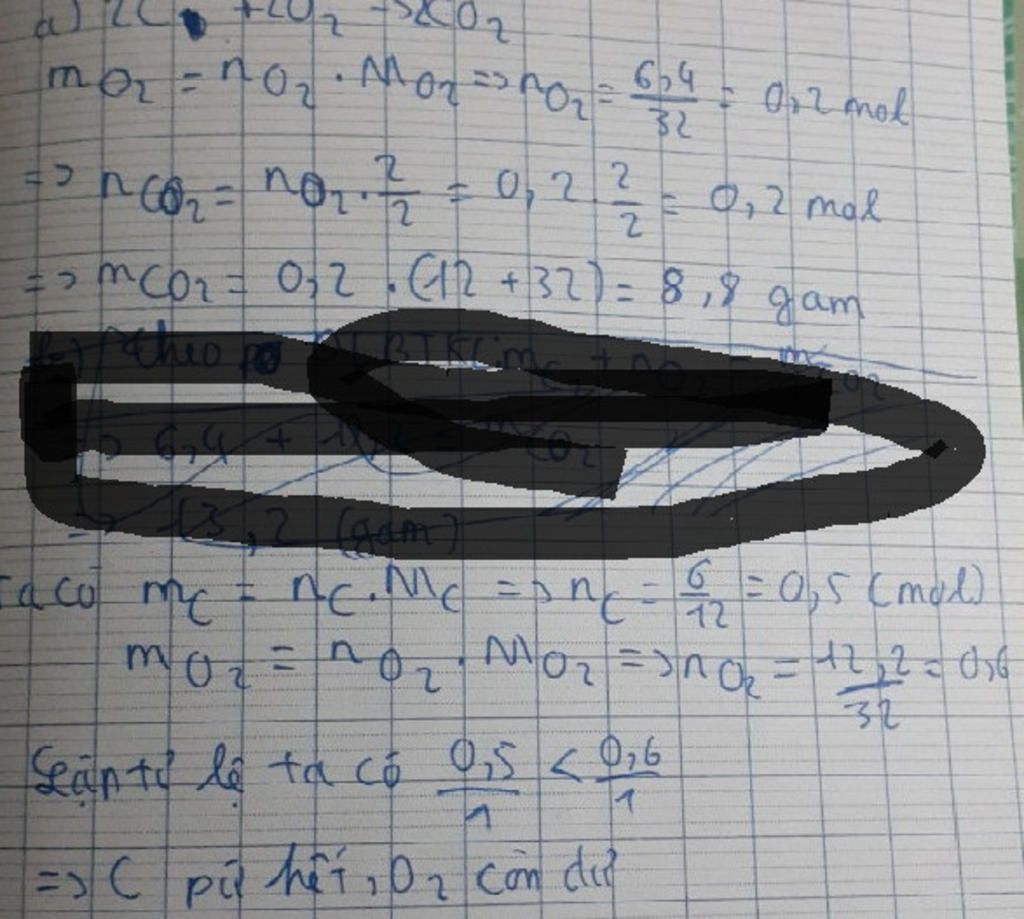 a) 2C + 2O2 -> 2CO2
mO2 = nO2 . MO2 => nO2 = 6,4/32 = 0,2 mol
=> nCO2 = nO2 . 2/2 = 0,2 . 2/2 = 0,2 mol
=> mCO2 = 0,2 . (12 + 32) = 8,8 gam
theo BTKL: mC + mO2
=> 6,4 + CO2
=> 13,2 (gam)
Ta có mC = nC . MC => nC = 6/12 = 0,5 (mol)
mO2 = nO2 . MO2 => nO2 = 12,2/32 = 0,6
lệ ta có 0,5/1 < 0,6/1
=> C pứ hết, O2 còn dư